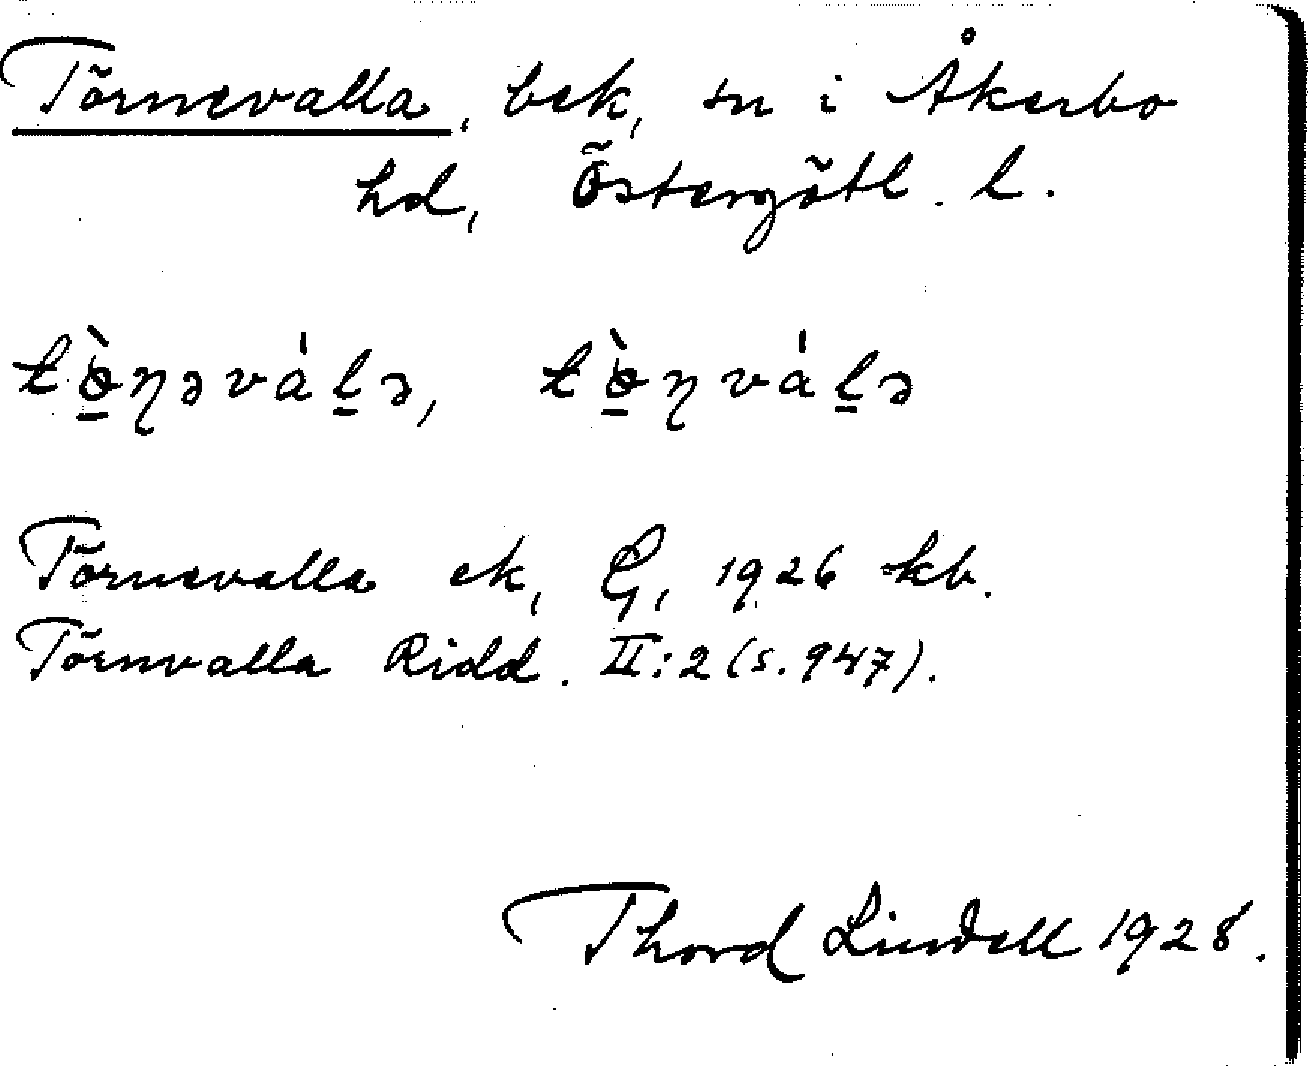 Törnevalla, bek, sn i Åkerbo
hd, Östergötl. l.
tö̱̀ɳəváḻə, tö̱̀ɳváḻə
Törnevalla ek, G, 1926 kb.
Törnvalla Ridd. II:2 (s. 947).
Thord Lindell 1928.